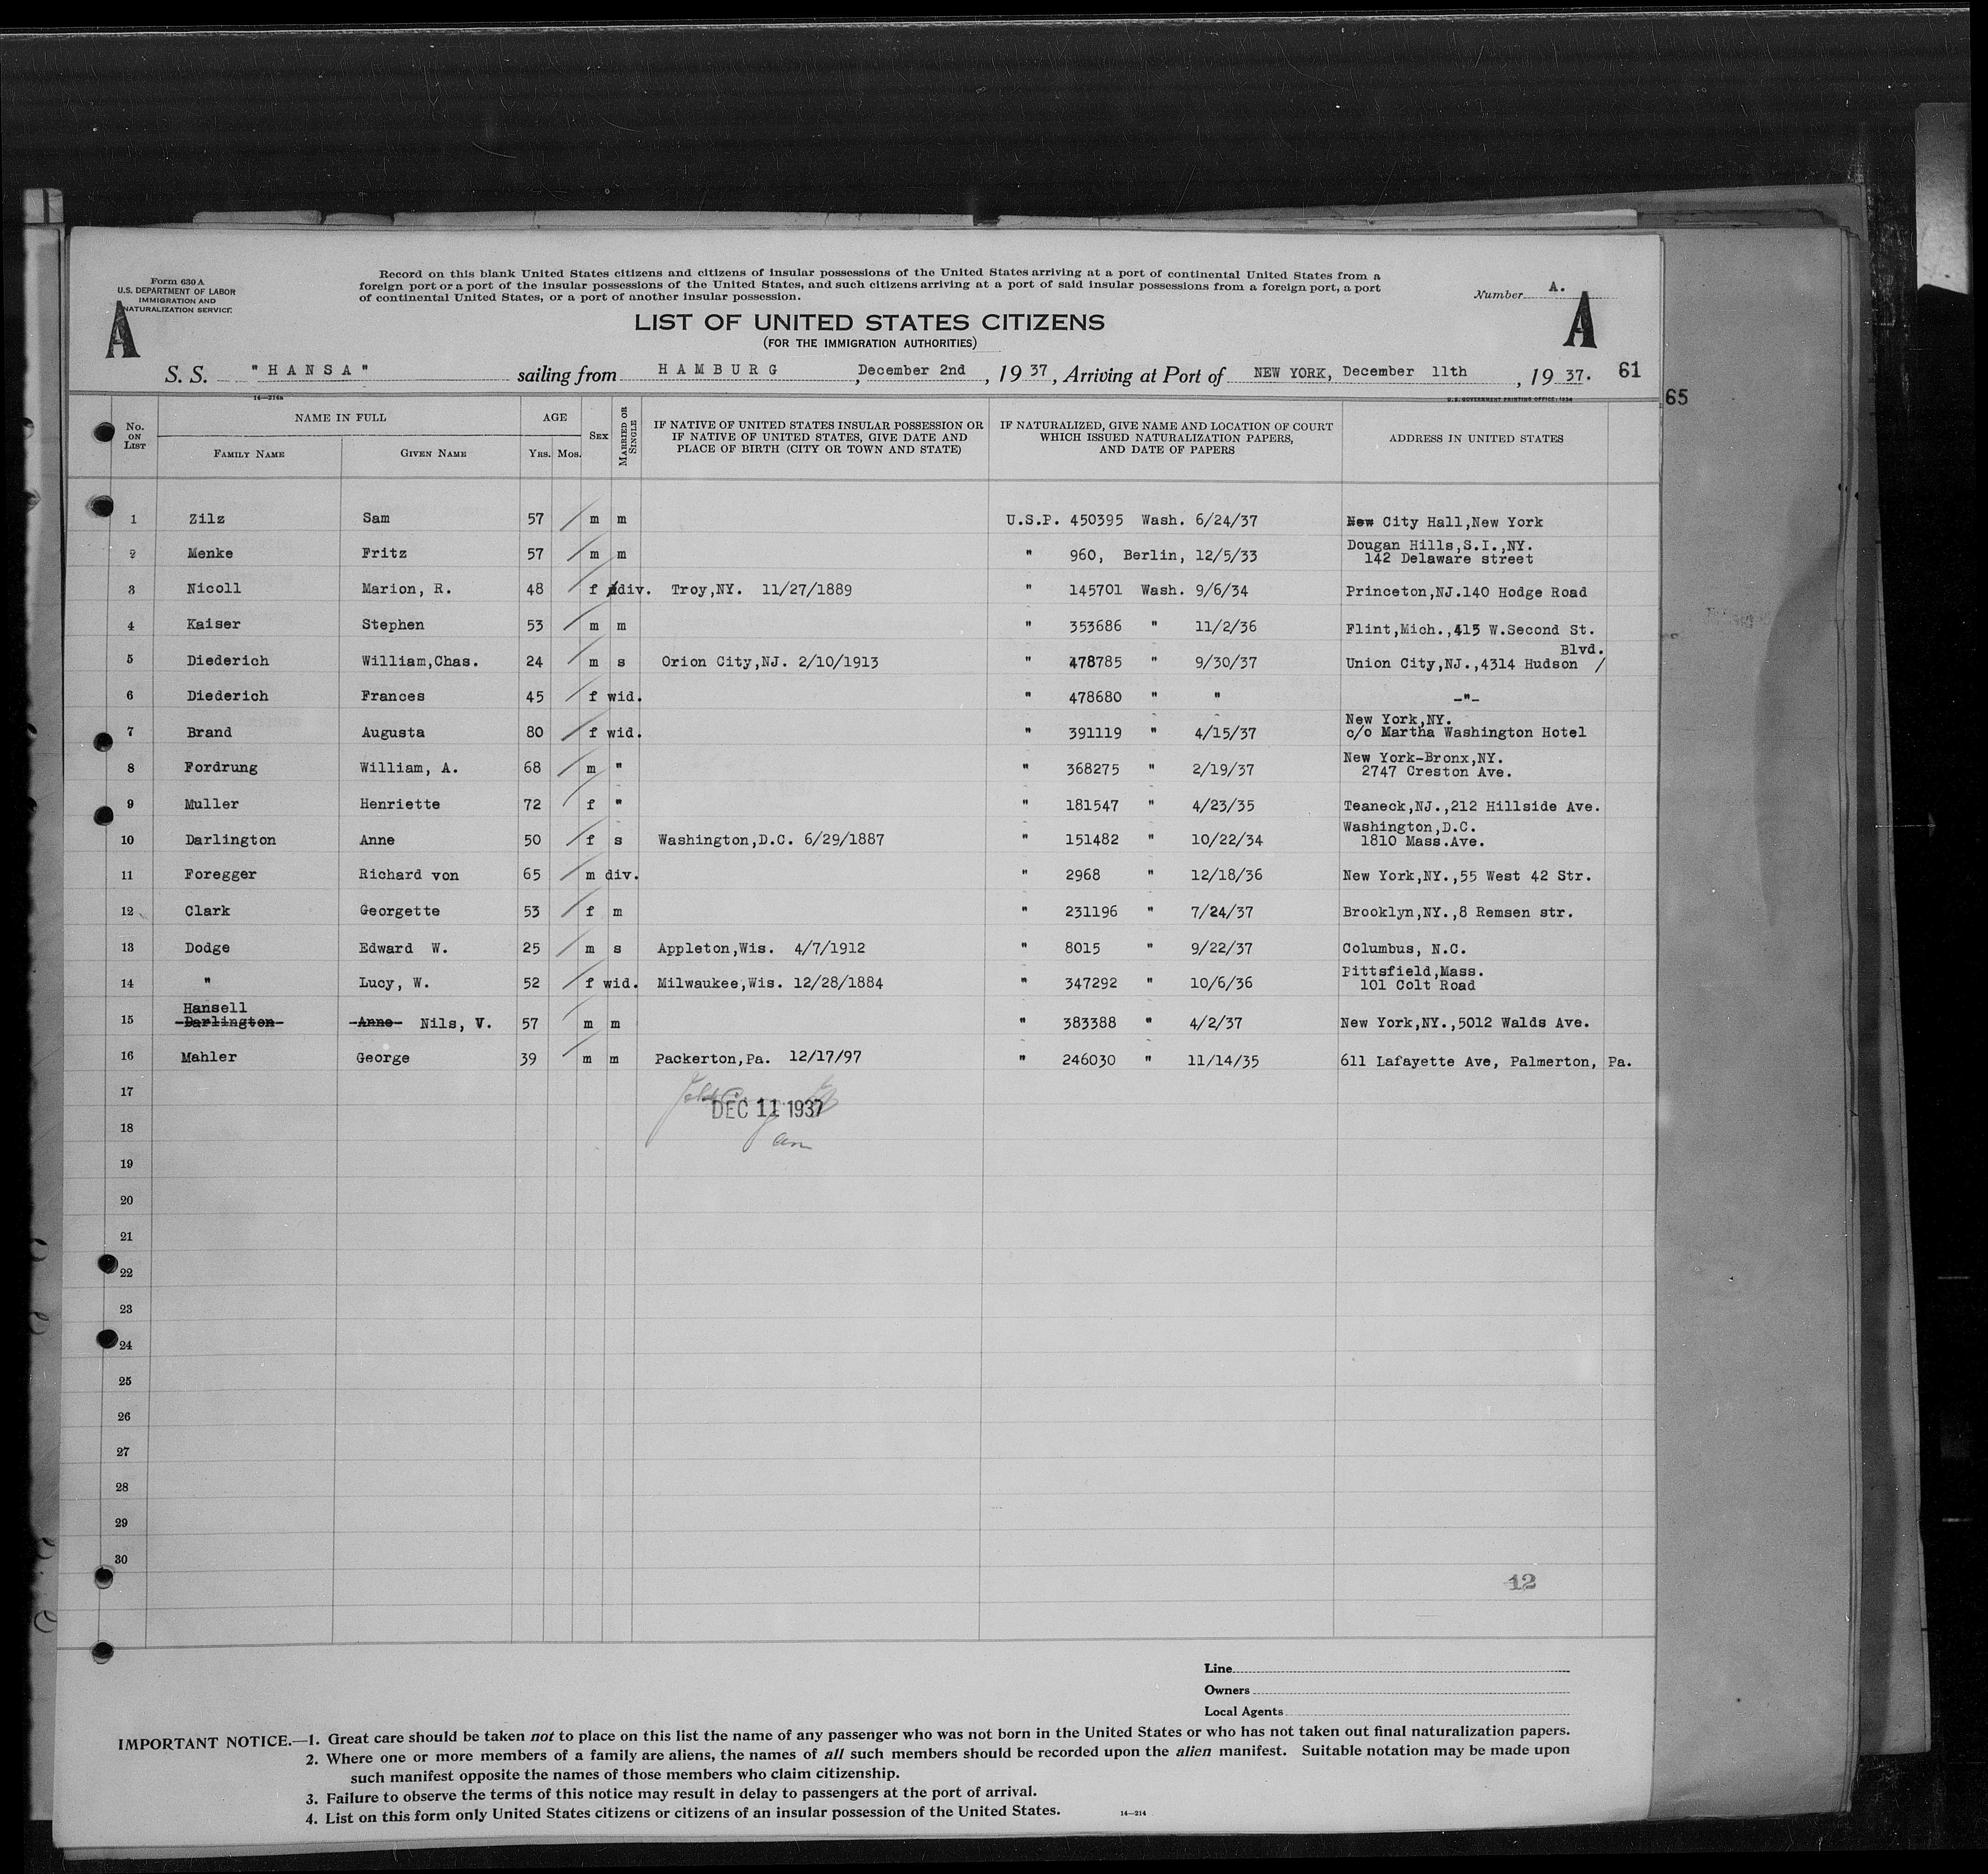 Form 630 A
U.S. DEPARTMENT OF LABOR
IMMIGRATION AND
NATURALIZATION SERVICE
A
Record on this blank United States citizens and citizens of insular possessions of the United States arriving at a port of continental United States from a
foreign port or a port of the insular possessions of the United States, and such citizens arriving at a port of said insular possessions from a foreign port, a port
of continental United States, or a port of another insular possession.
Number A.
A
LIST OF UNITED STATES CITIZENS
(FOR THE IMMIGRATION AUTHORITIES)
S. S. "HANSA" sailing from HAMBURG, December 2nd, 1937, Arriving at Port of NEW YORK, December 11th, 1937. 61
65
14—214a
U.S. GOVERNMENT PRINTING OFFICE: 1934
No. ON LIST NAME IN FULL FAMILY NAME GIVEN NAME AGE YRS. MOS. SEX MARRIED OR SINGLE IF NATIVE OF UNITED STATES INSULAR POSSESSION OR IF NATIVE OF UNITED STATES, GIVE DATE AND PLACE OF BIRTH (CITY OR TOWN AND STATE) IF NATURALIZED, GIVE NAME AND LOCATION OF COURT WHICH ISSUED NATURALIZATION PAPERS, AND DATE OF PAPERS ADDRESS IN UNITED STATES
1 Zilz Sam 57 m m U.S.P. 450395 Wash. 6/24/37 New City Hall,New York
2 Menke Fritz 57 m m " 960, Berlin, 12/5/33 Dougan Hills,S.I.,NY.
142 Delaware street
3 Nicoll Marion, R. 48 f div. Troy,NY. 11/27/1889 " 145701 Wash. 9/6/34 Princeton,NJ.140 Hodge Road
4 Kaiser Stephen 53 m m " 353686 " 11/2/36 Flint,Mich.,415 W.Second St.
5 Diederich William,Chas. 24 m s Orion City,NJ. 2/10/1913 " 478785 " 9/30/37 Union City,NJ.,4314 Hudson / Blvd.
6 Diederich Frances 45 f wid. " 478680 " " -"-
7 Brand Augusta 80 f wid. " 391119 " 4/15/37 New York,NY.
c/o Martha Washington Hotel
8 Fordrung William, A. 68 m " " 368275 " 2/19/37 New York-Bronx,NY.
2747 Creston Ave.
9 Muller Henriette 72 f " " 181547 " 4/23/35 Teaneck,NJ.,212 Hillside Ave.
10 Darlington Anne 50 f s Washington,D.C. 6/29/1887 " 151482 " 10/22/34 Washington,D.C.
1810 Mass.Ave.
11 Foregger Richard von 65 m div. " 2968 " 12/18/36 New York,NY.,55 West 42 Str.
12 Clark Georgette 53 f m " 231196 " 7/24/37 Brooklyn,NY.,8 Remsen str.
13 Dodge Edward W. 25 m s Appleton,Wis. 4/7/1912 " 8015 " 9/22/37 Columbus, N.C.
14 " Lucy, W. 52 f wid. Milwaukee,Wis. 12/28/1884 " 347292 " 10/6/36 Pittsfield,Mass.
101 Colt Road
Hansell
15 Darlington Anne Nils, V. 57 m m " 383388 " 4/2/37 New York,NY.,5012 Walds Ave.
16 Mahler George 39 m m Packerton,Pa. 12/17/97 " 246030 " 11/14/35 611 Lafayette Ave, Palmerton, Pa.
17
DEC 11 1937
18
19
20
21
22
23
24
25
26
27
28
29
30
12
Line
Owners
Local Agents
IMPORTANT NOTICE.—1. Great care should be taken not to place on this list the name of any passenger who was not born in the United States or who has not taken out final naturalization papers.
2. Where one or more members of a family are aliens, the names of all such members should be recorded upon the alien manifest. Suitable notation may be made upon
such manifest opposite the names of those members who claim citizenship.
3. Failure to observe the terms of this notice may result in delay to passengers at the port of arrival.
4. List on this form only United States citizens or citizens of an insular possession of the United States.
14—214